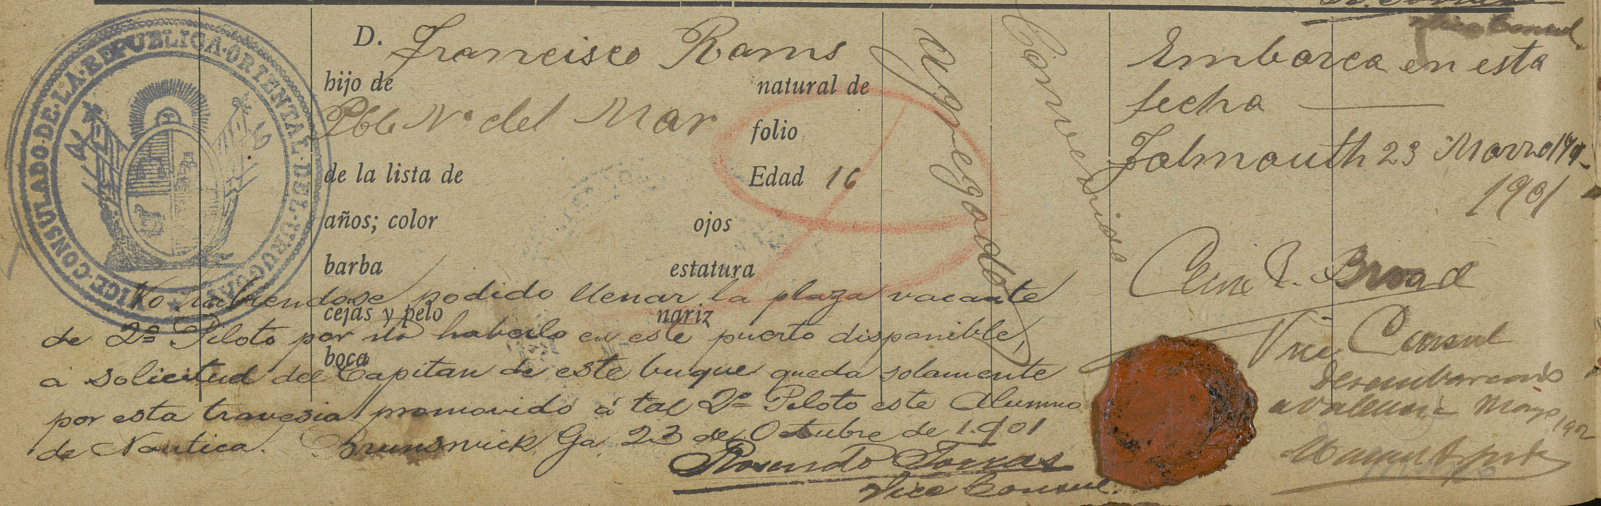 Vice Consul
VICE-CONSULADO-DE-LA-REPUBLICA-ORIENTAL-DEL-URUGUAY
D. Francisco Rams
hijo de natural de
Pble Nº del Mar
folio
de la lista de Edad 16
años; color ojos
barba estatura
cejas y pelo nariz
boca
Agregado
Convenido
Embarca en esta
fecha
Falmouth 23 Marzo
1901
Broad
Vice Consul
No habiendose podido llenar la plaza vacante
de 2º Piloto por no haberlo en este puerto disponible,
a solicitud del Capitan de este buque queda solamente
por esta travesia promovido á tal 2º Piloto este Alumno
de Nautica. Brunswick Ga. 23 de Octubre de 1901
Rosendo Torras
Vice Consul.
Desembarcado
a Valencia Mayo 1902